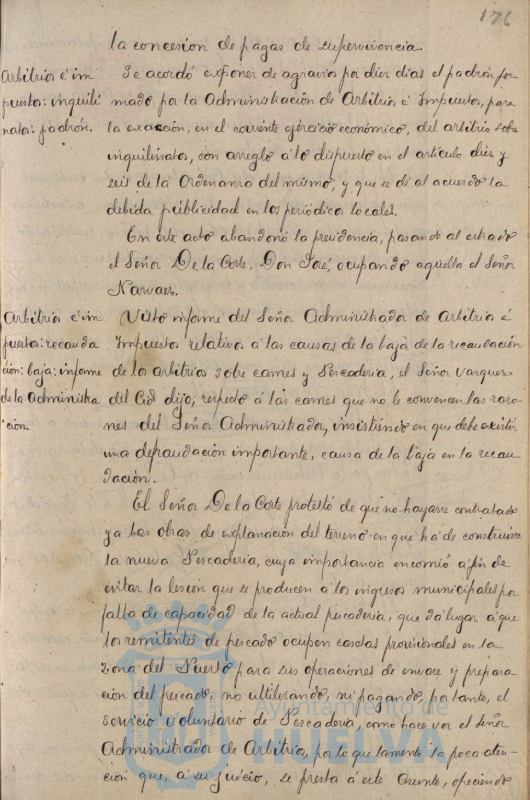 176
la concesión de pagas de supervivencia.
Arbitrios é im
puestos: inquili
natos: padrón.
Se acordó exponer de agravios por diez dias el padrón for
mado por la Administración de Arbitrios é Impuestos, para
la exacción, en el corriente ejercicio económico, del arbitrio sobre
inquilinatos, con arreglo á lo dispuesto en el artículo diez y
seis de la Ordenanza del mismo; y que se dé al acuerdo la
debida publicidad en los periódicos locales.
En este acto abandonó la presidencia, pasando al estrado
el Señor De la Corte, Don José, ocupando aquella el Señor
Narvaez.
Arbitrios é im
puestos: recauda
ción: baja: informe
de la Administra
ción.
Visto informe del Señor Administrador de Arbitrios é
Impuestos relativo á las causas de la baja de la recaudación
de los arbitrios sobre carnes y Pescadería, el Señor Vazquez
del Cid dijo, respecto á las carnes que no le convencen las razo-
nes del Señor Administrador, insistiendo en que debe existir
una defraudación importante, causa de la baja en la recau
dación.
El Señor De la Corte protestó de que no hayan contratado
ya las obras de explanación del terreno en que há de construirse
la nueva Pescadería, cuya importancia encomió á fin de
evitar la lesión que se producen á los ingresos municipales por
falta de capacidad de la actual pescadería, que dá lugar á que
los remitentes de pescado ocupen casetas provisionales en la
zona del Puerto para sus operaciones de envase y prepara
ción del pescado, no utilizando, ni pagando, por tanto, el
servicio voluntario de Pescadería, como hace ver el Señor
Administrador de Arbitrios, por lo que lamenta la poca aten-
ción que, á su juicio, se presta á este asunto, ofreciendo
Ayuntamiento de
HUELVA